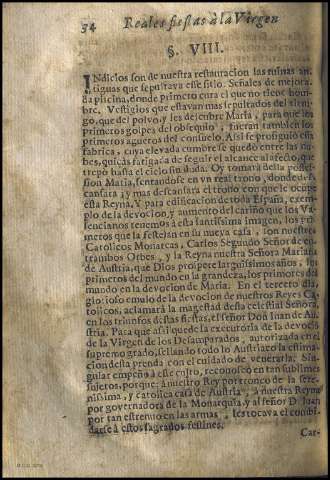 34 Reales fiestas à la Virgen
§. VIII.
INdicios son de nuestra restauracion las ruinas an-
tiguas que sepultava este sitio. Señales de mejora,
la piscina, donde primero cura el que no tiene hom-
bre. Vestigios que estavan mas sepultados del
go, que del polvo, y les dejcubre Maria, para que los
primeros golpes del obsequio, fueran tambien los
primeros agueros del consuelo. Assi se prosiguiò su
fabrica, cuya elevada cumbre se quedò entre las nu-
bes, quiçàs fatigada de seguir el alcance al afecto, que
trepò hasta el cielo sin duda. Oy tomarà della posses-
sion Maria, sentandose en vn real trono, donde des-
cansarà, y mas descansarà el trono con que le ocupe
esta Reyna. Y para edificacion de toda España, exem-
plo de la devocion, y aumento del cariño que los Va-
lencianos tenemos à esta santissima imagen, los pri-
meros que la festejan en su nueva casa, son nuestros
Catolicos Monarcas, Carlos Segundo Señor de en-
trambos Orbes, y la Reyna nuestra Señora Mariana
de Austria, que Dios prospere larguissimos años, los
primeros del mundo en la grandeza, los primores del
mundo en la devocion de Maria. En el tercero dia,
glorioso emulo de la devocion de nuestros Reyes Ca-
tolicos, aclamarà la magestad desta celestial Señora,
en los triunfos destas fiestas, el señor Don Juan de Aus-
tria. Paca que assi quede la executoria de la devociõ
de la Virgen de los Desamparados, autorizada en el
supremo grado, sellando todo lo Austriaco la estima-
cion desta prenda con el cuidado de venerarla. Sin-
gular empeño à este culto, reconoscò en tan sublimes
sujetos, porque: à nuestro Rey por tronco de la sere-
nissima, y catolica casa de Austria, à nuestra Reyna
por governadora de la Monarquia, y al señor D. Juan
por tan estrenuo en las armas, les tocava el combi-
darse à estos sagrados festines.
Car-